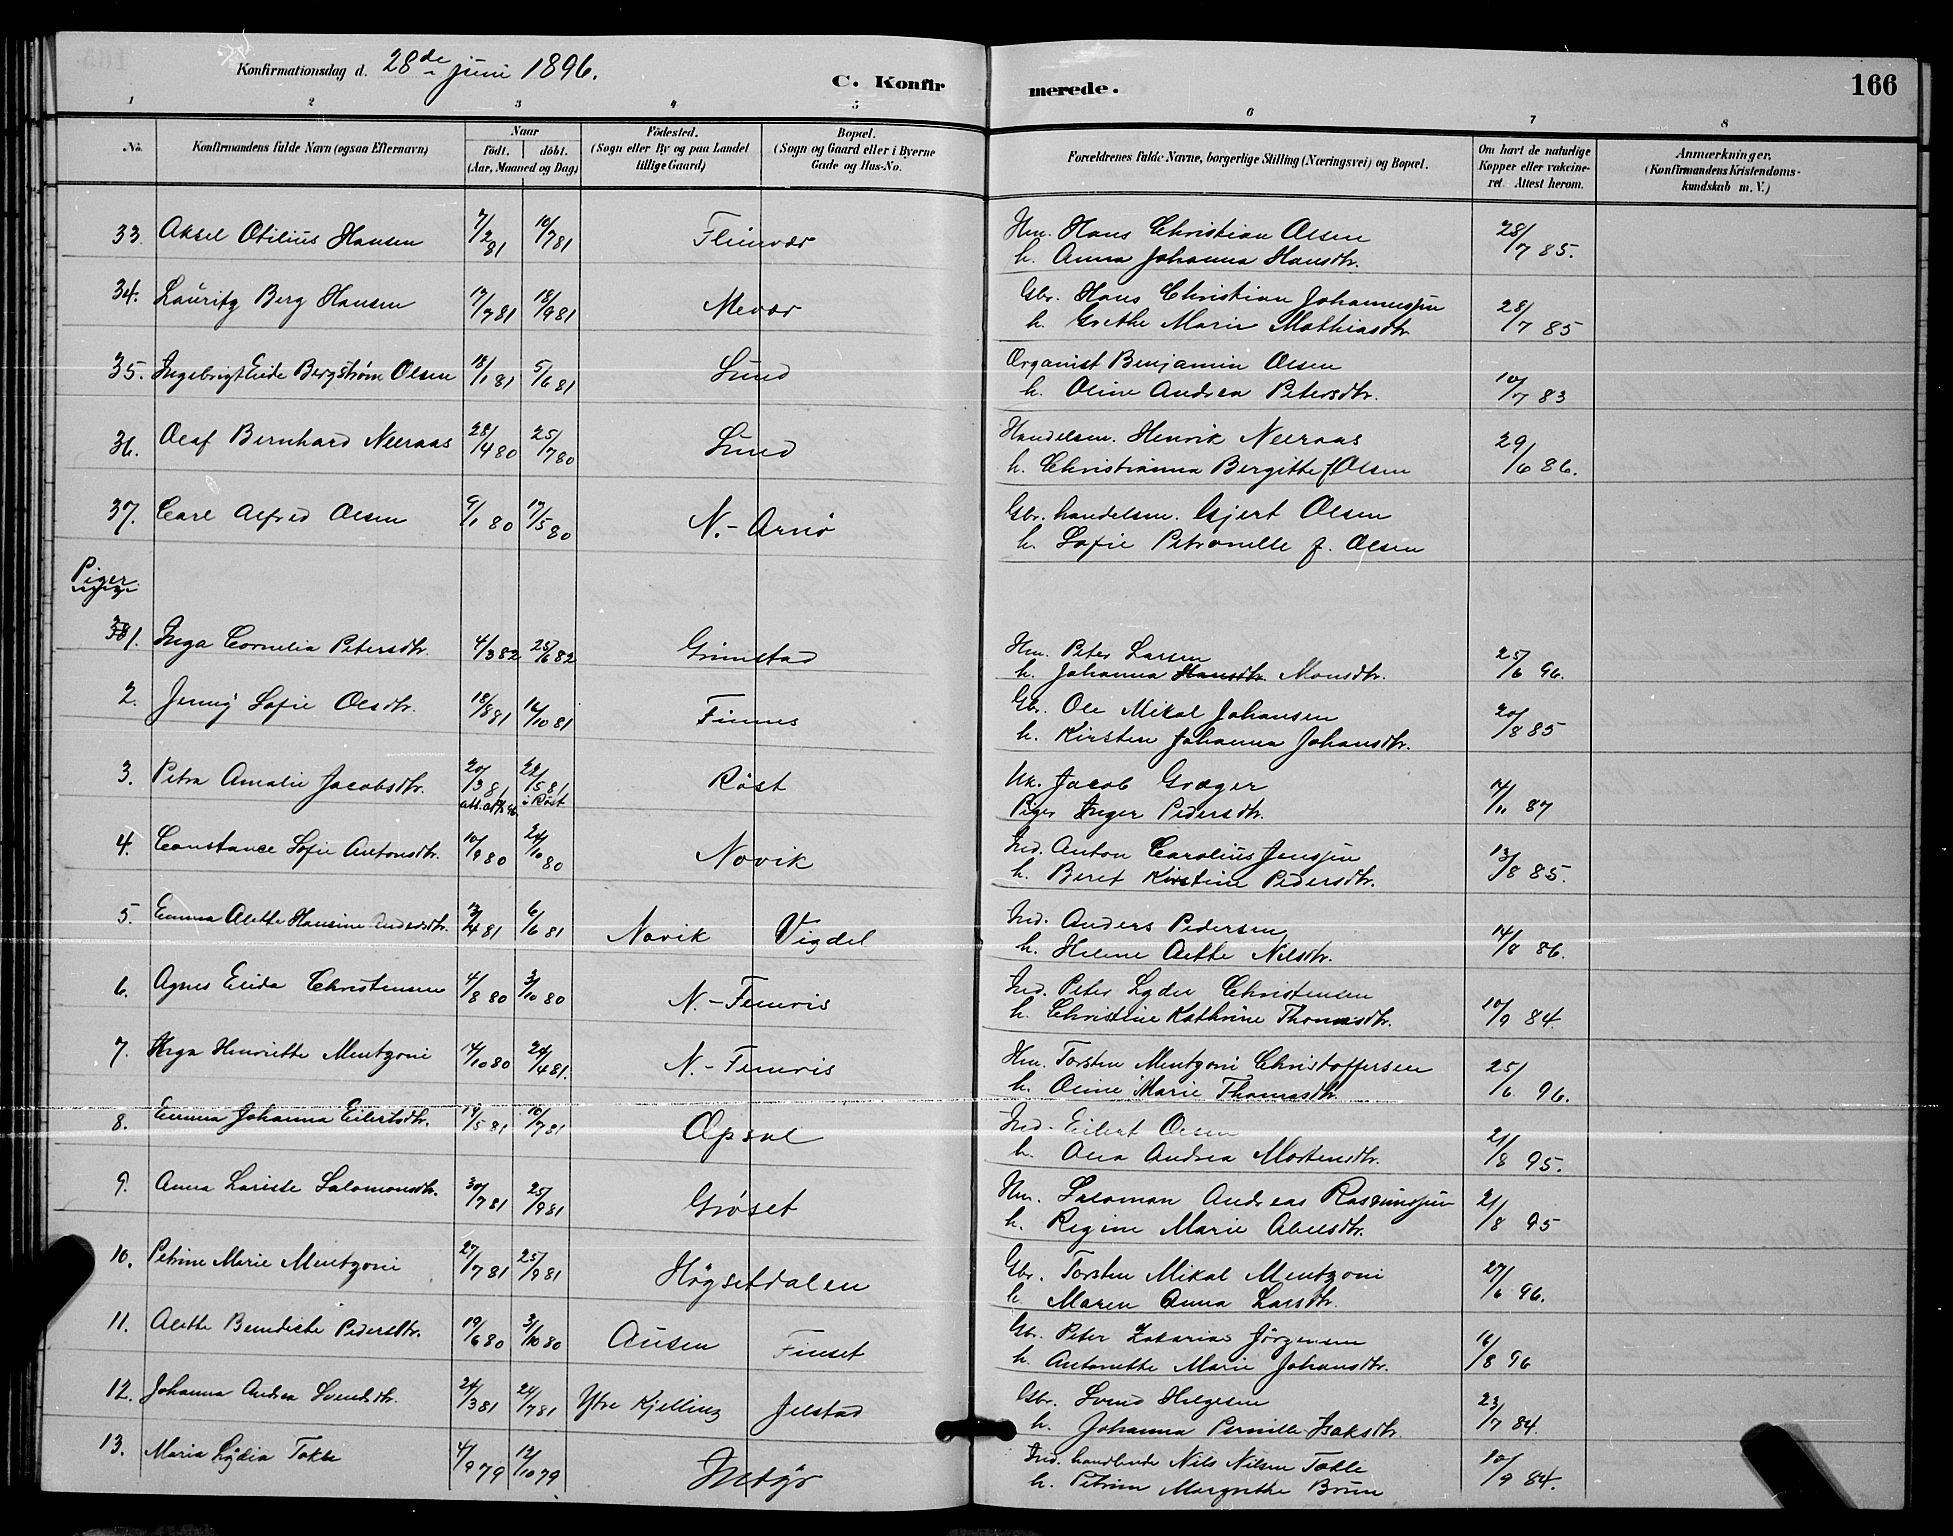 Konfirmationsdag d. 28de juni 1896.
C. Konfirmerede.
166
1 2 3 4 5 6 7 8
No. Konfirmandens fulde Navn (ogsaa Efternavn) Naar født. døbt. (Aar, Maaned og Dag) Fødested. (Sogn eller By og paa Landet tillige Gaard) Bopæl. (Sogn og Gaard eller i Byerne Gade og Hus-No. Forældrenes fulde Navne, borgerlige Stilling (Næringsvei) og Bopæl. Om havt de naturlige Kopper eller vakcineret. Attest herom. Anmærkninger. (Konfirmandens Kristendomskundskab m. V.)
33. Aksel Otilius Hansen 7/2 81 10/7 81 Fleinvær Hm. Hans Christian Olsen 28/7 85.
h. Anna Johanna Hansdtr.
34. Lauritz Berg Hansen 17/7 81 18/9 81 Mevær Gbr. Hans Christian Johannessen 28/7 85
h. Grethe Marie Mathiasdtr.
35. Ingebrigt Eide Bergstrøm Olsen 18/1 81 5/6 81 Lund Organist Benjamin Olsen
h. Oline Andrea Petersdtr. 10/7 83
36. Olaf Bernhard Neeraas 28/4 80 25/7 80 Lund Handelsm. Henrik Neeraas 29/6 86.
h. Christianna Bergitte f. Olsen
37. Carl Alfred Olsen 9/1 80 17/5 80 N.-Arnø Gbr. handelsm. Gjert Olsen
h. Sofie Petronelle f. Olsen
Piger
1. Inga Cornelia Petersdtr. 4/3 82 25/6 82 Grimstad Hm. Peter Larsen 25/6 96.
h. Johanna Hansdtr. Monsdtr.
2. Jenny Sofie Olsdtr. 18/8 81 16/10 81 Finnes Gbr. Ole Mikal Johansen 20/8 85
h. Kirsten Johanna Johansdtr.
3. Petra Amalie Jacobsdtr. 20/3 81 22/5 81 i Røst Røst Uk. Jacob Græger 14/11 87
Pige Inger Pedersdtr.
4. Constance Sofie Antonsdtr. 10/9 80 24/10 80 Novik Ind. Anton Carolius Jenssen 13/8 85.
h. Beret Kirstine Pedersdtr.
5. Emma Alette Hansine Andersdtr. 13/4 81 6/6 81 Novik Vigdel Ind. Anders Pedersen 14/8 86.
h. Helene Aette Nilsdtr.
6. Agnes Elida Christensen 4/8 80 3/10 80 N.-Femris Ind. Peter Lyder Christensen
h. Christine Kathrine Thomasdtr. 10/9 84
7. Inga Henriette Mentzoni 14/10 80 24/4 81. N.-Femris Hm. Torsten Mentzoni Christoffersen 25/6 96.
h. Oline Marie Thomasdtr.
8. Emma Johanna Eilertsdtr. 14/5 81 10/7 81 Opsal Ind. Eilert Olsen 21/8 95.
h. Ana Andrea Mortensdtr.
9. Anna Lovise Salomonsdtr. 30/7 81 25/9 81 Grøset Hm. Salomon Andreas Rasmussen 21/8 95
h. Regine Marie Abelsdtr.
10. Petrine Marie Mentzoni 27/7 81 25/9 81 Høgsetdalen Gbr. Torsten Mikal Mentzoni 27/6 96.
h. Maren Anna Larsdtr.
11. Alette Benedicte Pedersdtr. 19/6 80 3/10 80 Ausen Finset Gbr. Peter Zakarias Jørgensen
h. Antonette Marie Johansdtr. 16/8 96
12. Johanna Andrea Svendsdtr. 24/3 81 24/7 81 Ytre Kjelling Jelstad Gbr. Svend Helgesen 23/7 84.
h. Johanna Pernille Isaksdtr.
13. Maria Lydia Tokle 4/9 79 12/10 79 Indyr Ind. handlende Nils Nilsen Tokle 10/9 84.
h. Petrine Margrethe Bruun